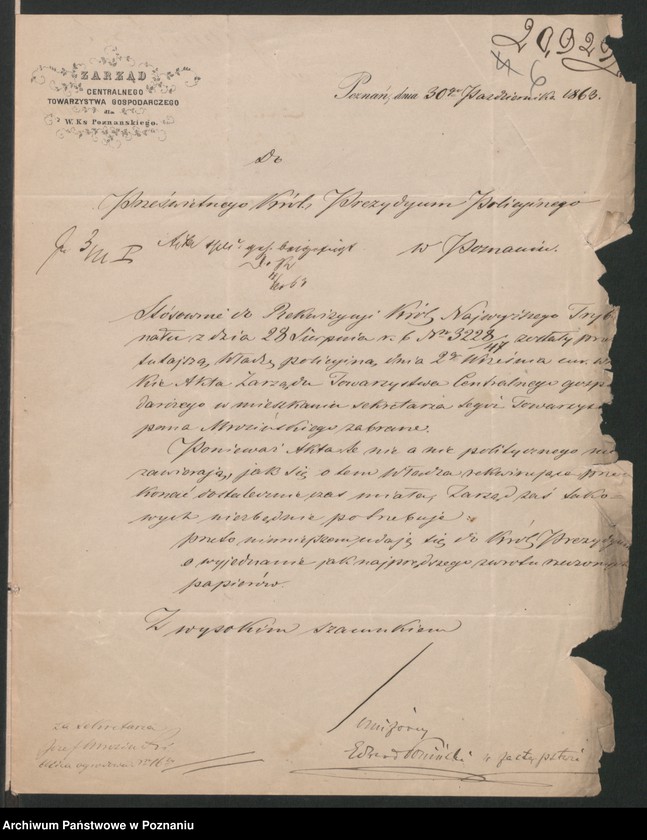 20929
6
ZARZĄD
CENTRALNEGO
TOWARZYSTWA GOSPODARCZEGO
dla
W. Ks Poznanskiego.
Poznań, dnia 30go Października 1863.
Do
Prześwietnego Król. Prezydyum Policyjnego
w Poznaniu.
Stósownie do Rekwizycyi Król. Najwyższego Tryb
nału z dnia 28 Sierpnia r. b. No 3228/47 zostały prze
tutajszą Władzę policyjną dnia 2go Września
Akta Zarządu Towarzystwa Centralnego gosp
darczego w mieszkaniu sekretarza tegoż Towarzyst
pana Mrozińskiego zabrane.
Ponieważ Akta te nic a nic politycznego nie
zawierają, jak się o tem Władza rekwirująca prze
konać dostatecznie czas miała, Zarząd zaś tako
wych niezbędnie potrzebuje
przeto niniejszem udaję się do Król. Prezydyu
o wyjednanie jak najprędszego zwrotu rzeczonych
papierów.
Z wysokim szacunkiem
za sekretarza
Józef Mroziński
Archiwum Państwowe w Poznaniu